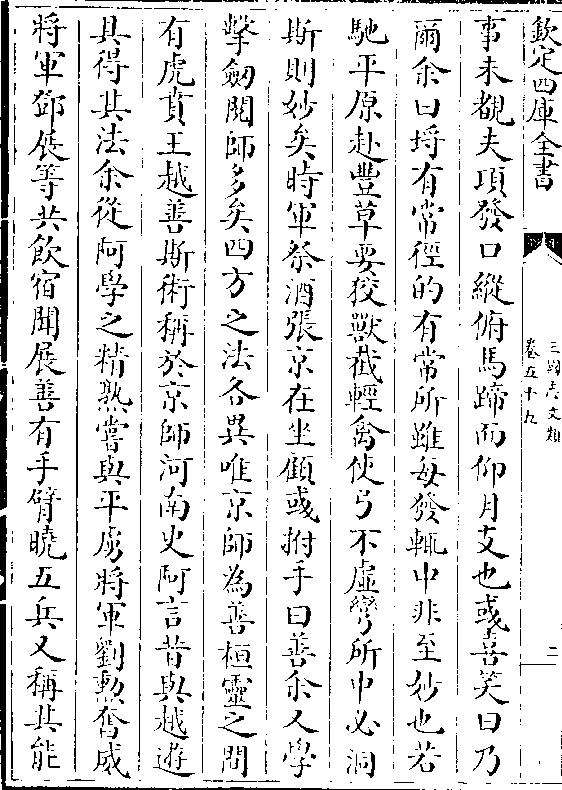 欽定四庫全書
三國志文類
卷五十九
二
事未覩夫項發口縱俯馬蹄而仰月支也彧喜笑曰乃
爾余曰埓有常徑的有常所雖每發輒中非至妙也若
馳平原赴豐草要狡獸截輕禽使弓不虛彎所中必洞
斯則妙矣時軍祭酒張京在坐顧彧拊手曰善余又學
擊劔閱師多矣四方之法各異唯京師為善桓靈之間
有虎賁王越善斯術稱於京師河南史阿言昔與越遊
具得其法余從阿學之精熟嘗與平虜將軍劉勲奮威
將軍鄧展等共飲宿聞展善有手臂曉五兵又稱其能